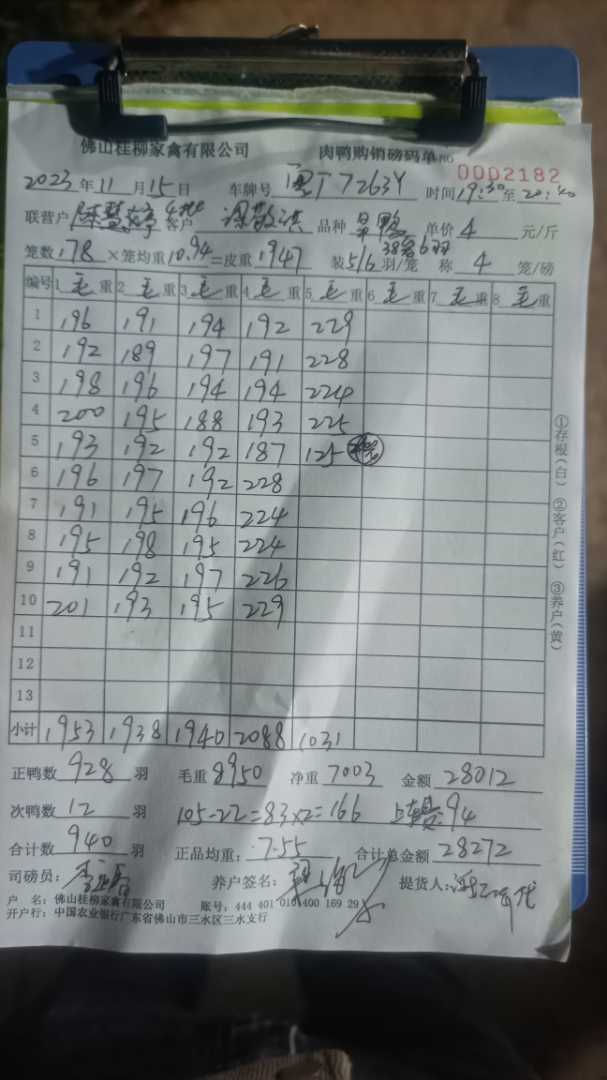 佛山桂柳家禽有限公司 肉鸭购销磅码单 NO 0002182
2023年11月15日 车牌号 T7263Y 时间19:30至20:40
联营户 客户 品种 旱鸭 单价 4 元/斤
笼数178×笼均重10.94=皮重1947 装5/6羽/笼 38笼6羽 称4笼/磅
编号 1毛重 2毛重 3毛重 4毛重 5毛重 6毛重 7毛重 8毛重
1 196 191 194 192 229
2 192 189 197 191 228
3 198 196 194 194 224
4 200 195 188 193 225
5 193 192 192 187 125
6 196 197 192 228
7 191 195 196 224
8 195 198 195 224
9 191 192 197 226
10 201 193 195 229
11
12
13
小计 1953 1938 1940 2088 1031
正鸭数 928 羽 毛重 8950 净重 7003 金额 28012
次鸭数 12 羽 105-22=83×2=166 上车费94
合计数 940 羽 正品均重: 7.55 合计总金额 28272
司磅员: 养户签名: 提货人:
户 名: 佛山桂柳家禽有限公司 账号: 444 401 010 400 169 29
开户行: 中国农业银行广东省佛山市三水区三水支行
①存根(白) ②客户(红) ③养户(黄)